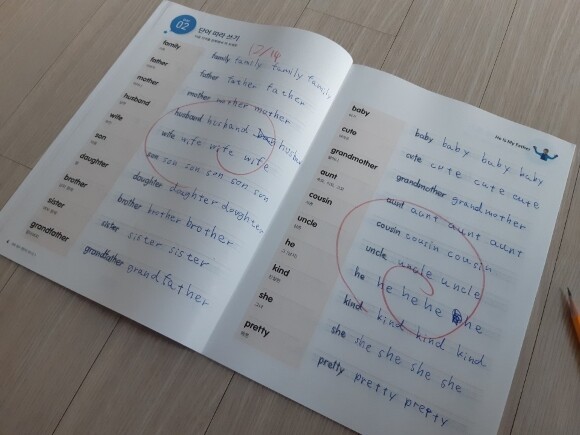 02
단어 따라 쓰기
12/14
family family family family family
father father father
mother mother mother
husband husband husband
wife wife wife wife
son son son son son son
daughter daughter daughter
brother brother brother
sister sister sister
grandfather grandfather
family
father
mother
husband
wife
son
daughter
brother
sister
grandfather
4
He Is My Father
baby
cute
grandmother
aunt
cousin
uncle
he
kind
she
pretty
baby baby baby baby
cute cute cute cute
grandmother grandmother
aunt aunt aunt aunt
cousin cousin cousin
uncle uncle uncle
he he he he he
kind kind kind kind
she she she she she
pretty pretty pretty